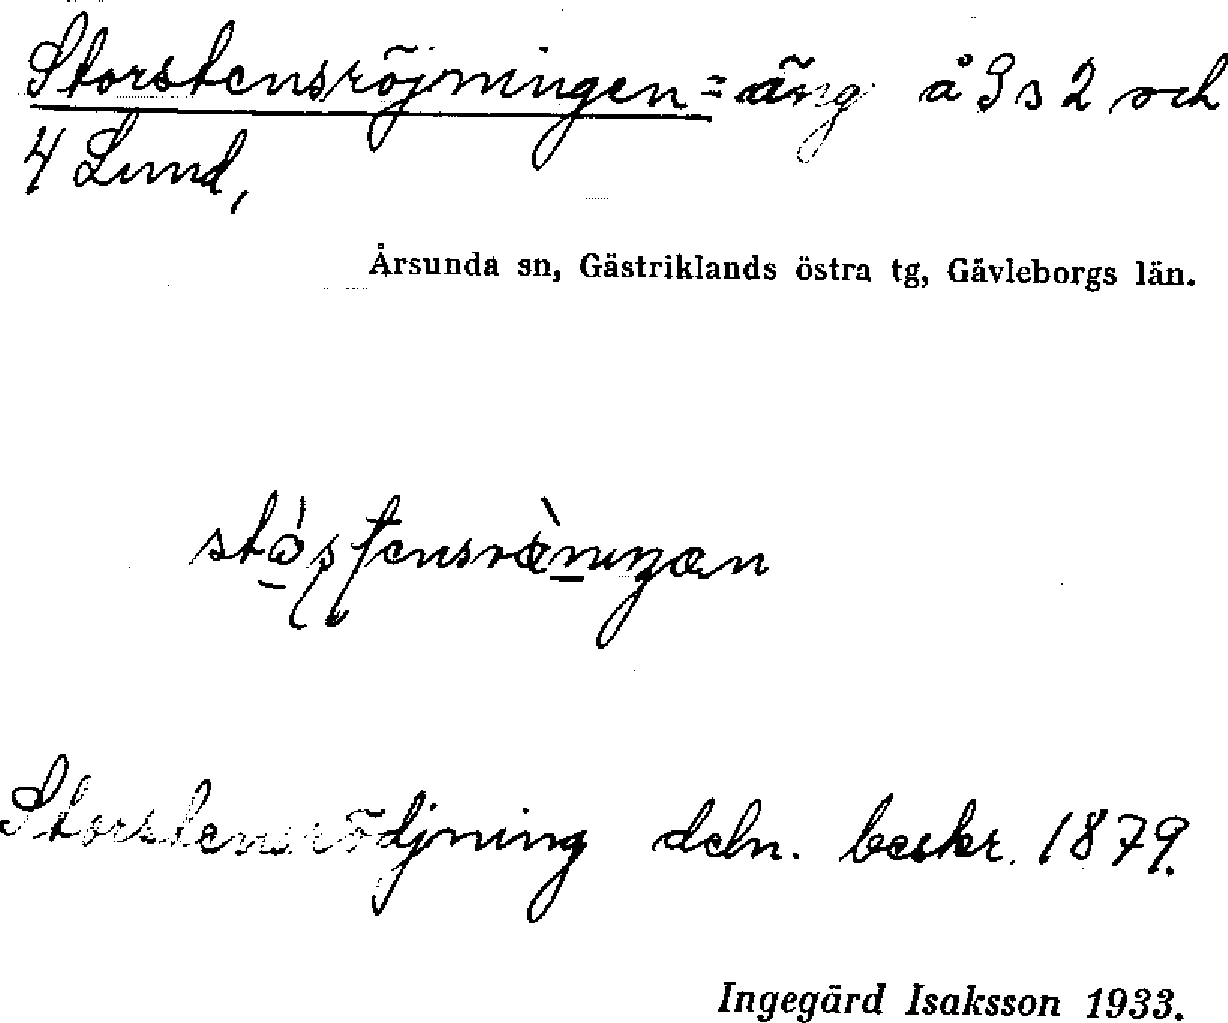 Storstensröjningen = äng å Js 2 och
4 Lund,
Årsunda sn, Gästriklands östra tg, Gävleborgs län.
Storstensrödjning deln. beskr. 1879.
Ingegärd Isaksson 1933.